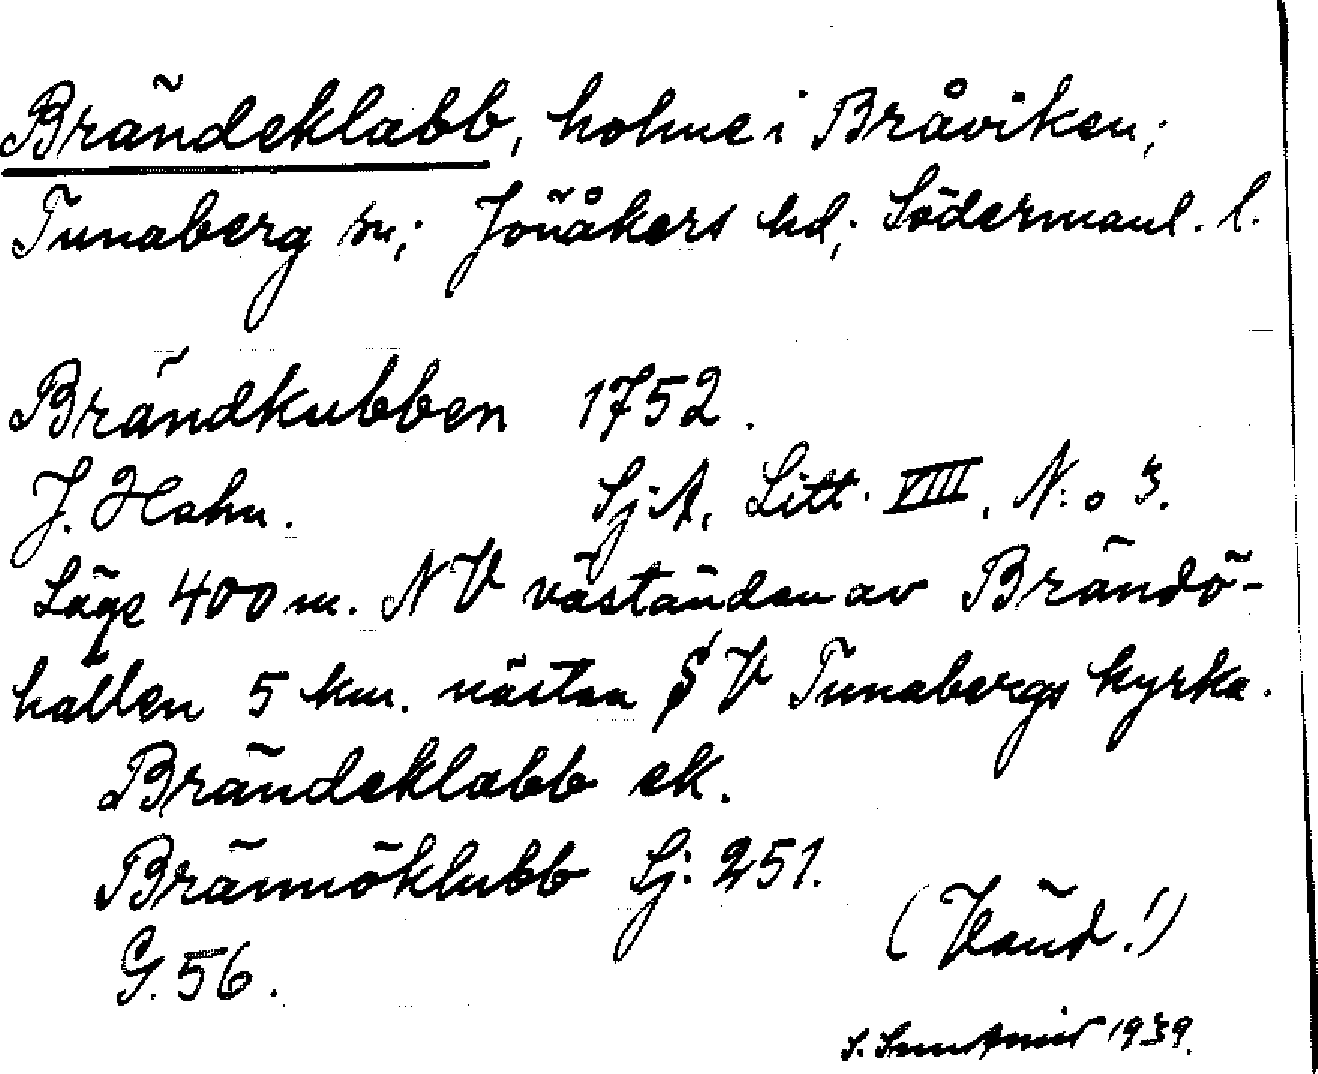 Brändeklabb, holme i Bråviken;
Tunaberg sn; Jönåkers hd; Södermanl. l.
Brändkubben 1752.
J. Hahn. Sj:A, Litt. VIII, N:o 3.
Läge 400 m. NV väständen av Brändö-
hällen 5 km. nästan SV Tunabergs kyrka.
Brändeklabb ek.
Brännöklubb Sj: 251.
G. 56.
(Vänd!)
S. 1939.